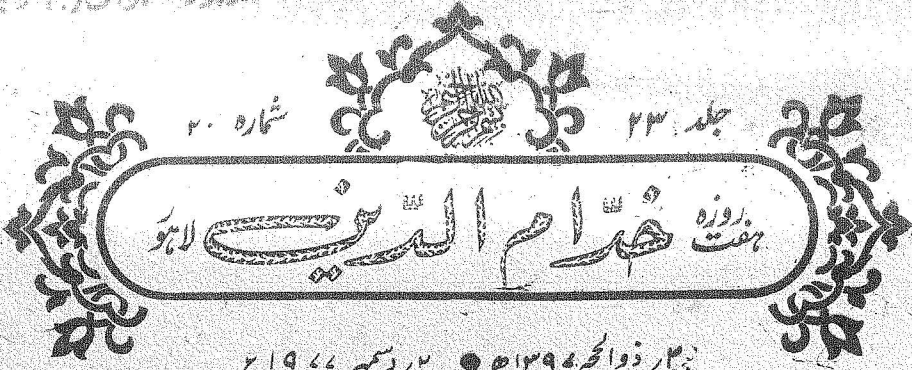 بسم الله الرحمن الرحيم
جلد ۲۳ شمارہ ۲۰
ہفت روزہ خدّام الدّین لاہور
ذوالحجہ ۱۳۹۷ھ ● ۲ر دسمبر ۱۹۷۷ء